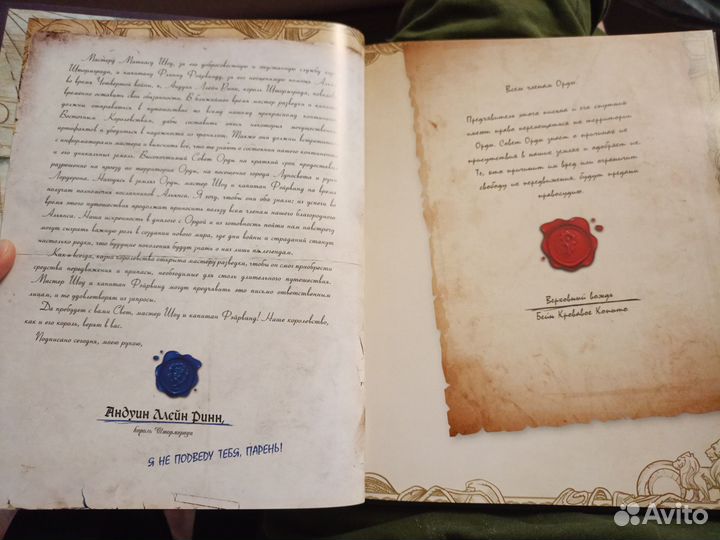 Мастеру Матиасу Шоу, за его добросовестную и неустанную службу
Штормграда, и капитану Флинну Фэйрвинду, за его неоценимую помощь
во время Четвертой войны, я, Андуин Ллейн Ринн, король Штормграда,
временно оставить свои обязанности. В ближайшее время мастер разведки и
должны отправиться в путешествие по всему нашему прекрасному континенту
Восточным Королевствам, дабы составить опись некоторых могущественных
артефактов и убедиться в надежности их хранилищ. Также они должны встретиться
с информаторами мастера и выяснить все, что те знают о состоянии нашего континента
и его уникальных земель. Высокочтимый Совет Орды на краткий срок предоставил
разрешение на проезд по территории Орды, на посещение города Луносвета и руин
Лордерона. Находясь в землях Орды, мастер Шоу и капитан Фэйрвинд на время
получат полномочия посланников Альянса. Я хочу, чтобы они оба знали: их успехи во
время этого путешествия продолжат приносить пользу всем членам нашего благородного
Альянса. Наша искренность в диалоге с Ордой и их готовность пойти нам навстречу
могут сыграть важную роль в создании нового мира, где дни войны и страданий станут
настолько редки, что будущие поколения будут знать о них лишь по легендам.
Как и всегда, казна королевства открыта мастеру разведки, чтобы он смог приобрести
средства передвижения и припасы, необходимые для столь длительного путешествия.
Мастер Шоу и капитан Фэйрвинд могут предъявить это письмо ответственным
лицам, и те удовлетворят их запросы.
Да пребудет с вами Свет, мастер Шоу и капитан Фэйрвинд! Наше королевство,
как и его король, верят в вас.
Подписано сегодня, моею рукою,
Андуин Ллейн Ринн,
король Штормграда
Я НЕ ПОДВЕДУ ТЕБЯ, ПАРЕНЬ!
Всем членам Орды
Предъявитель этого письма и его спутник
имеет право перемещаться по территории
Орды. Совет Орды знает о причинах их
присутствия в наших землях и одобряет их.
Те, кто причинит им вред или ограничит
свободу их передвижения, будут преданы
правосудию.
Верховный вождь
Бейн Кровавое Копыто
Avito